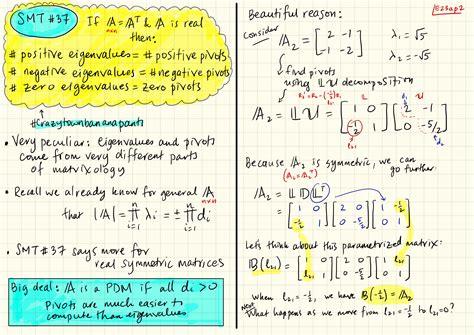 SMT #37 If A = Aᵀ & A is real
n×n
then:
# positive eigenvalues = # positive pivots
# negative eigenvalues = # negative pivots
# zero eigenvalues = # zero pivots
#crazytownbananapants
• Very peculiar: eigenvalues and pivots
come from very different parts
of matrixology
• Recall we already know for general A
n×n
that |A| = ∏ᵢ₌₁ⁿ λᵢ = ± ∏ᵢ₌₁ⁿ dᵢ
• SMT #37 says more for
real symmetric matrices
Big deal: A is a PDM if all dᵢ > 0
Pivots are much easier to
compute than eigenvalues
Beautiful reason:
Consider A₂ = [2 -1; -1 -2] λ₁ = √5
λ₂ = -√5
find pivots
using LU decomposition
A₂ = LU = [1 0; -1/2 1] [2 -1; 0 -5/2]
l₂₁
d₂
Because A₂ is symmetric, we can
(A₂ = A₂ᵀ) go further:
A₂ = L D Lᵀ
= [1 0; -1/2 1] [2 0; 0 -5/2] [1 -1/2; 0 1]
Lets think about this parametrized matrix:
B(l₂₁) = [1 0; l₂₁ 1] [2 0; 0 -5/2] [1 l₂₁; 0 1]
When l₂₁ = -1/2, we have B(-1/2) = A₂
Next What happens as we move from l₂₁ = -1/2 to l₂₁ = 0?